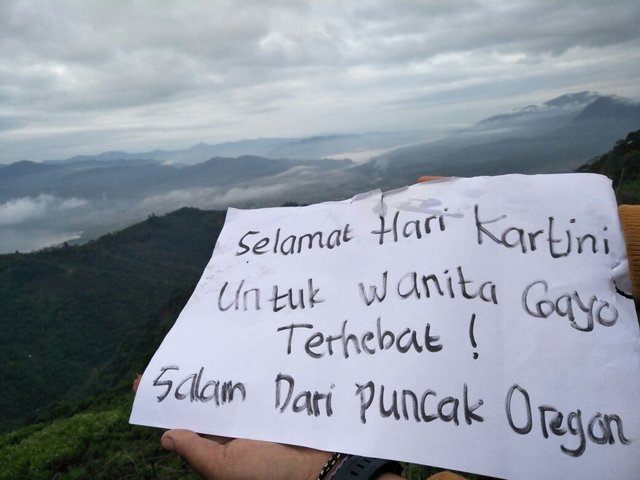 Selamat Hari Kartini
Untuk Wanita Gayo
Terhebat !
Salam Dari Puncak Oregon